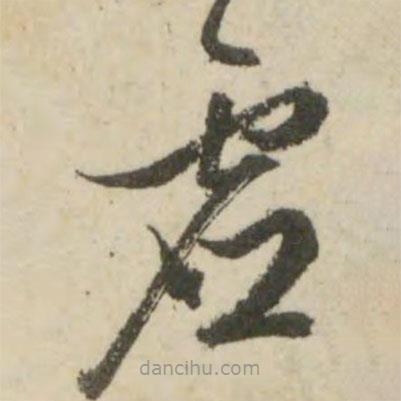 虚
dancihu.com